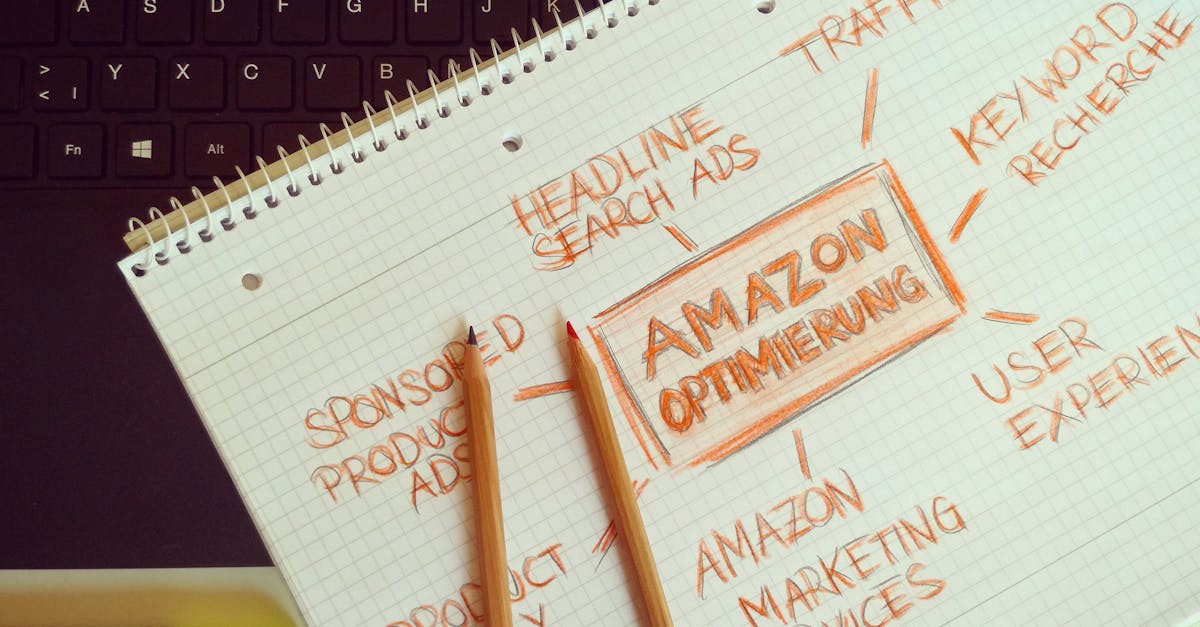 A S D F G H J K
> Y X C V B
< |
Fn Alt
TRAFFI
KEYWORD
RECHERCHE
HEADLINE
SEARCH ADS
AMAZON
OPTIMIERUNG
SPONSORED
PRODUCT
ADS
USER
EXPERIEN
AMAZON
MARKETING
VICES
PRODUCT